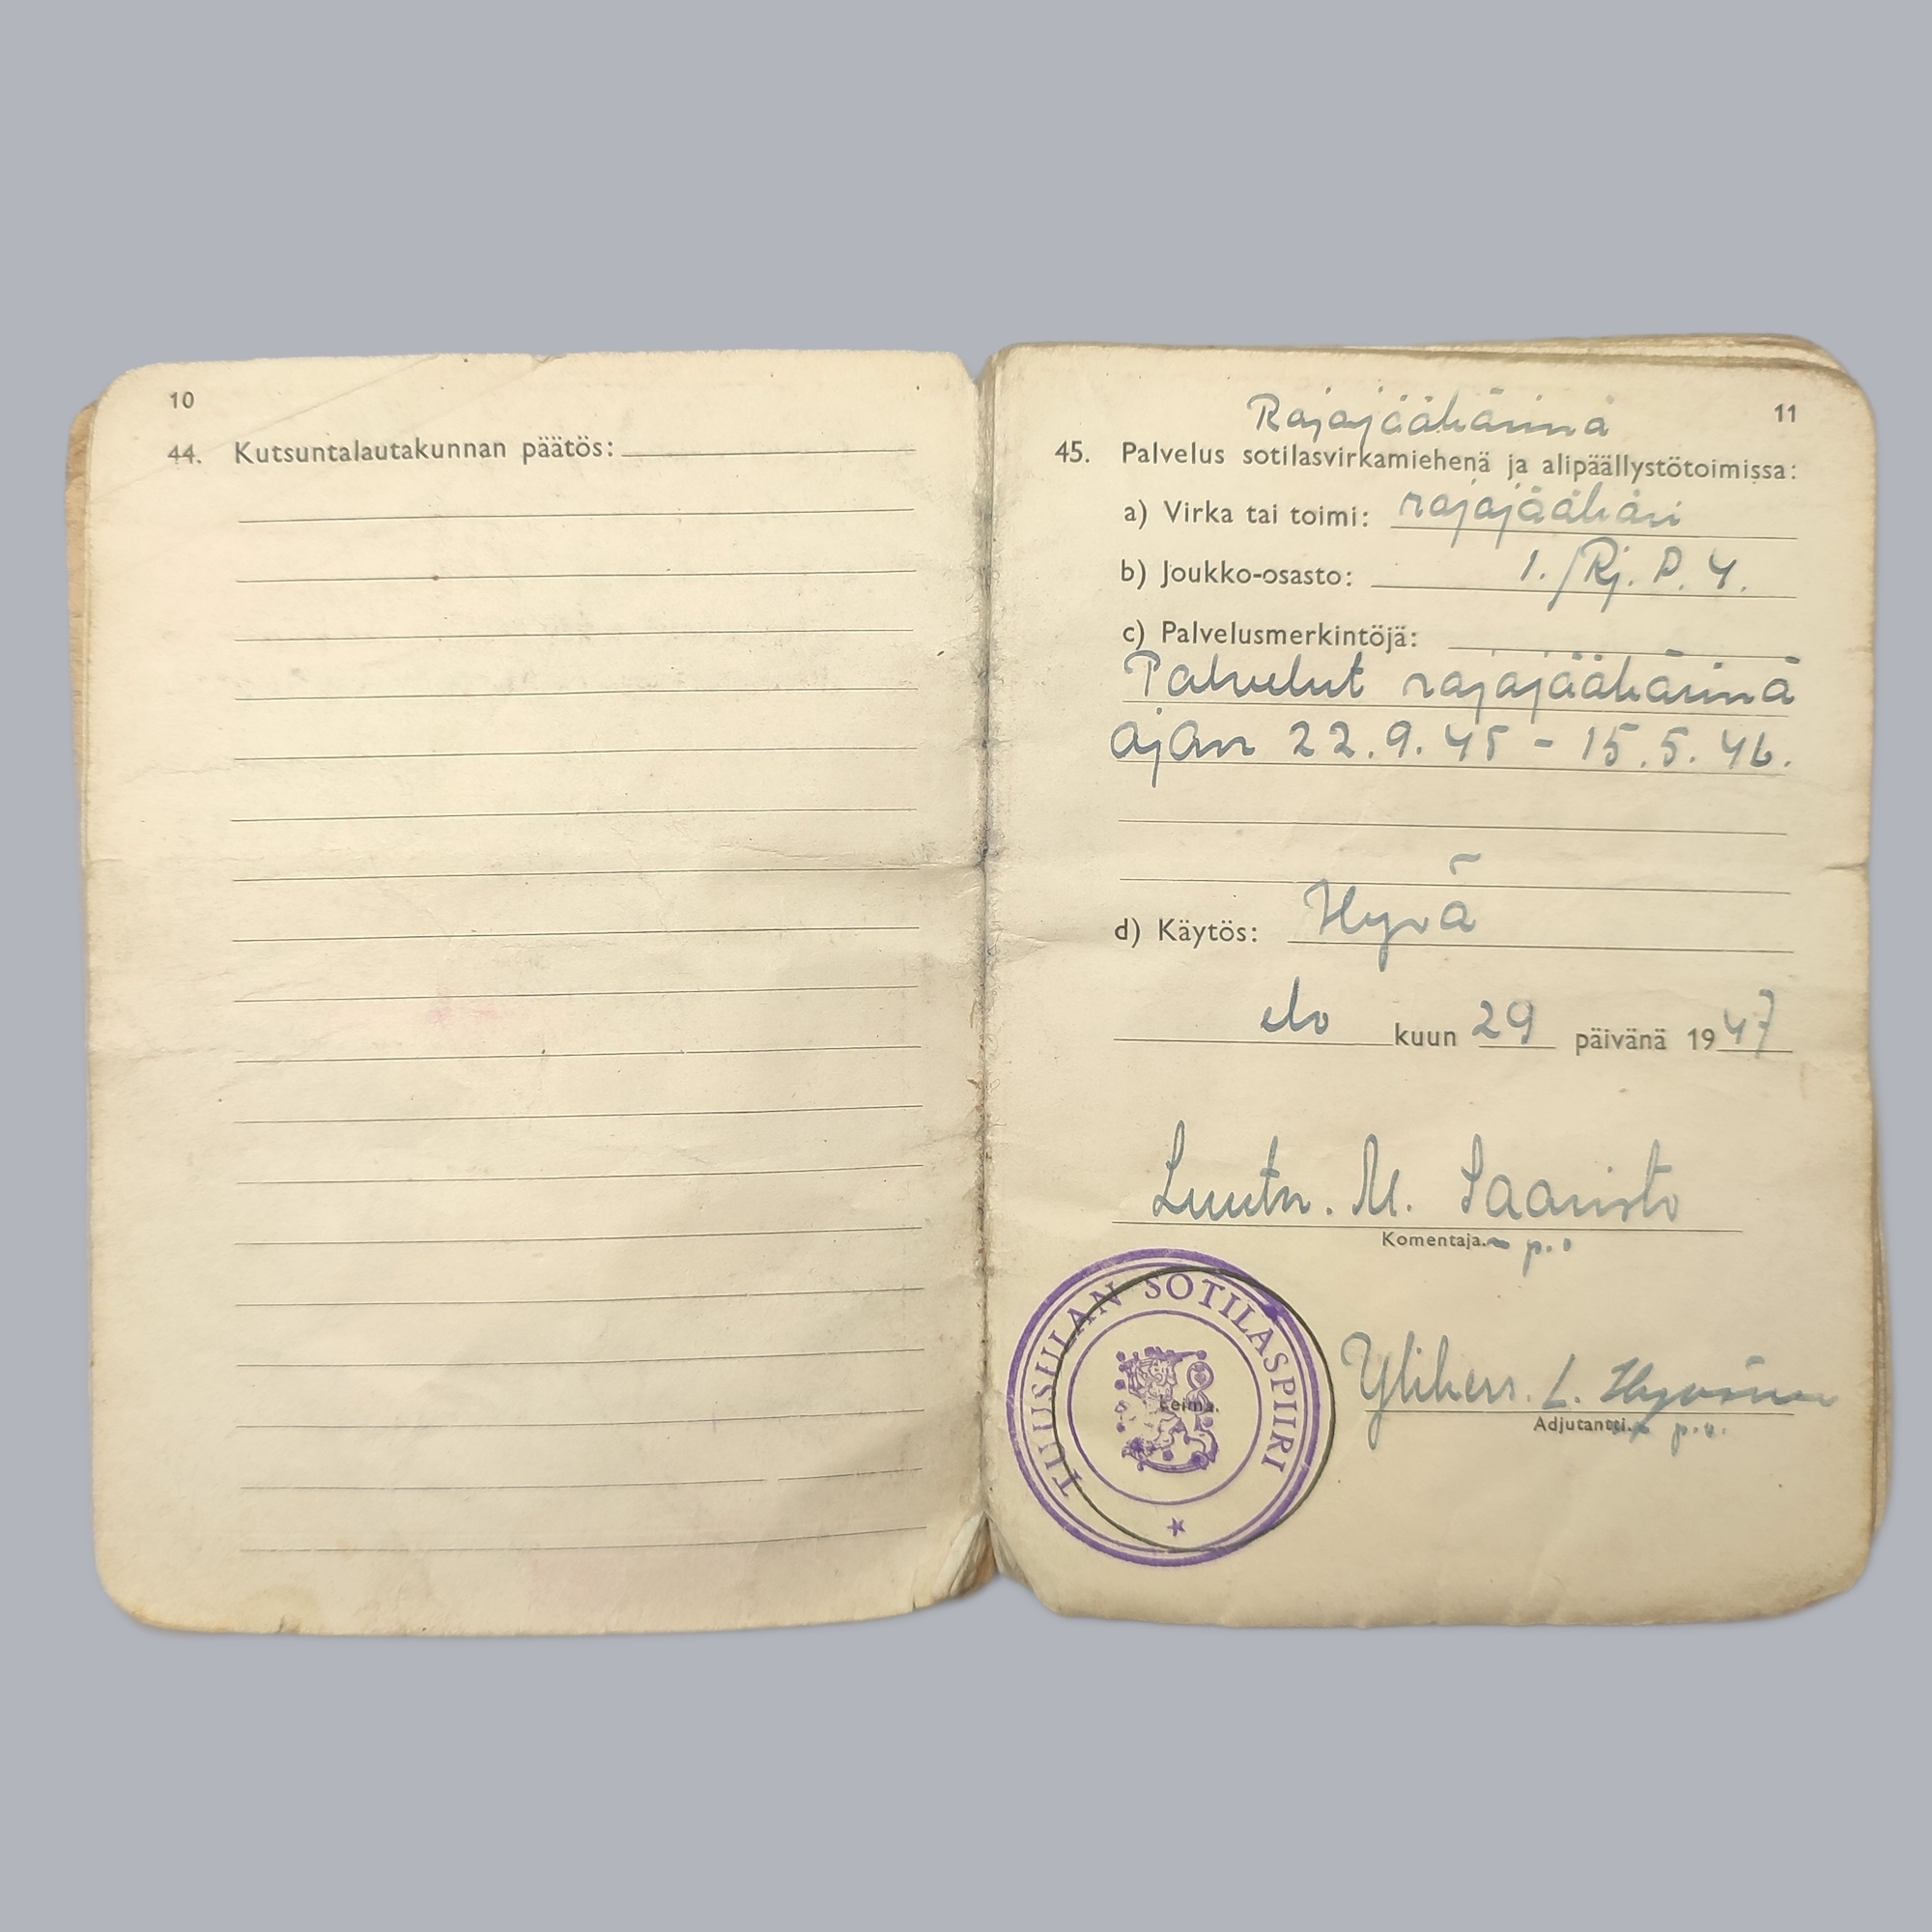 10
44. Kutsuntalautakunnan päätös:
Rajajääkärinä
11
45. Palvelus sotilasvirkamiehenä ja alipäällystötoimissa:
a) Virka tai toimi: rajajääkäri
b) Joukko-osasto: 1./Rj. P. 4.
c) Palvelusmerkintöjä:
Palvelut rajajääkärinä
ajan 22.9.45 - 15.5.46.
d) Käytös: Hyvä
elo kuun 29 päivänä 1947
Luutn. M. Saaristo
Komentaja. p.o
TUUSULAN SOTILASPIIRI
Leima.
Ylikers. L. Hyvönen
Adjutantti. p.o.